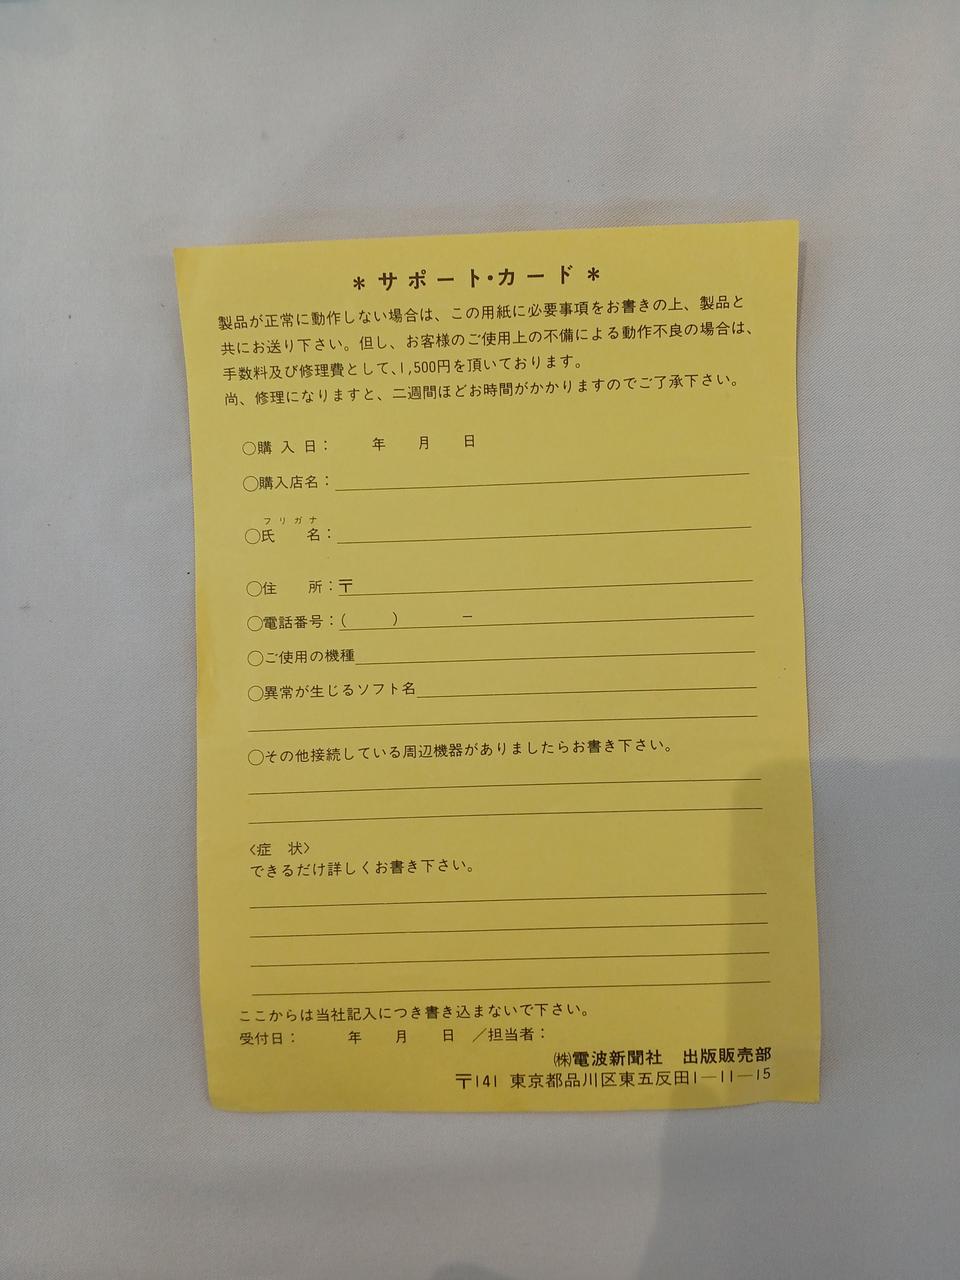 ＊サポート・カード＊
製品が正常に動作しない場合は、この用紙に必要事項をお書きの上、製品と
共にお送り下さい。但し、お客様のご使用上の不備による動作不良の場合は、
手数料及び修理費として、1,500円を頂いております。
尚、修理になりますと、二週間ほどお時間がかかりますのでご了承下さい。
○購入日：　　年　　月　　日
○購入店名：
フリガナ
○氏　　名：
○住　　所：〒
○電話番号：(　　　)　　　　－
○ご使用の機種
○異常が生じるソフト名
○その他接続している周辺機器がありましたらお書き下さい。
〈症　状〉
できるだけ詳しくお書き下さい。
ここからは当社記入につき書き込まないで下さい。
受付日：　　　年　　月　　日　／担当者：
㈱電波新聞社　出版販売部
〒141 東京都品川区東五反田1－11－15